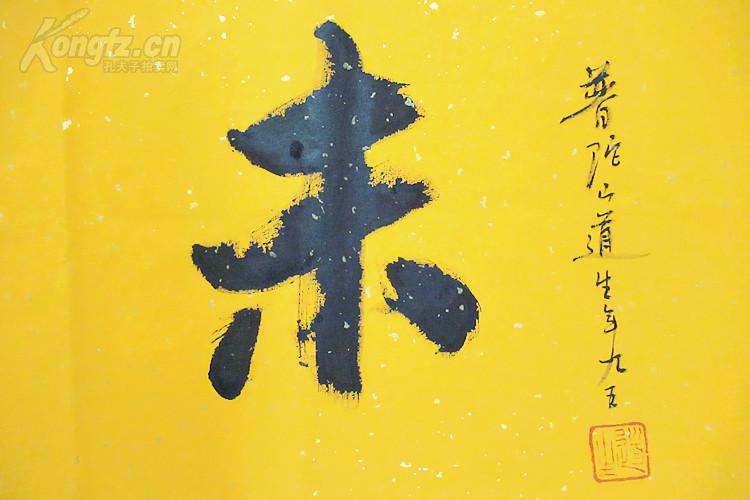 Kongfz.cn
孔夫子拍卖网
未
普陀山道生年九五
道生